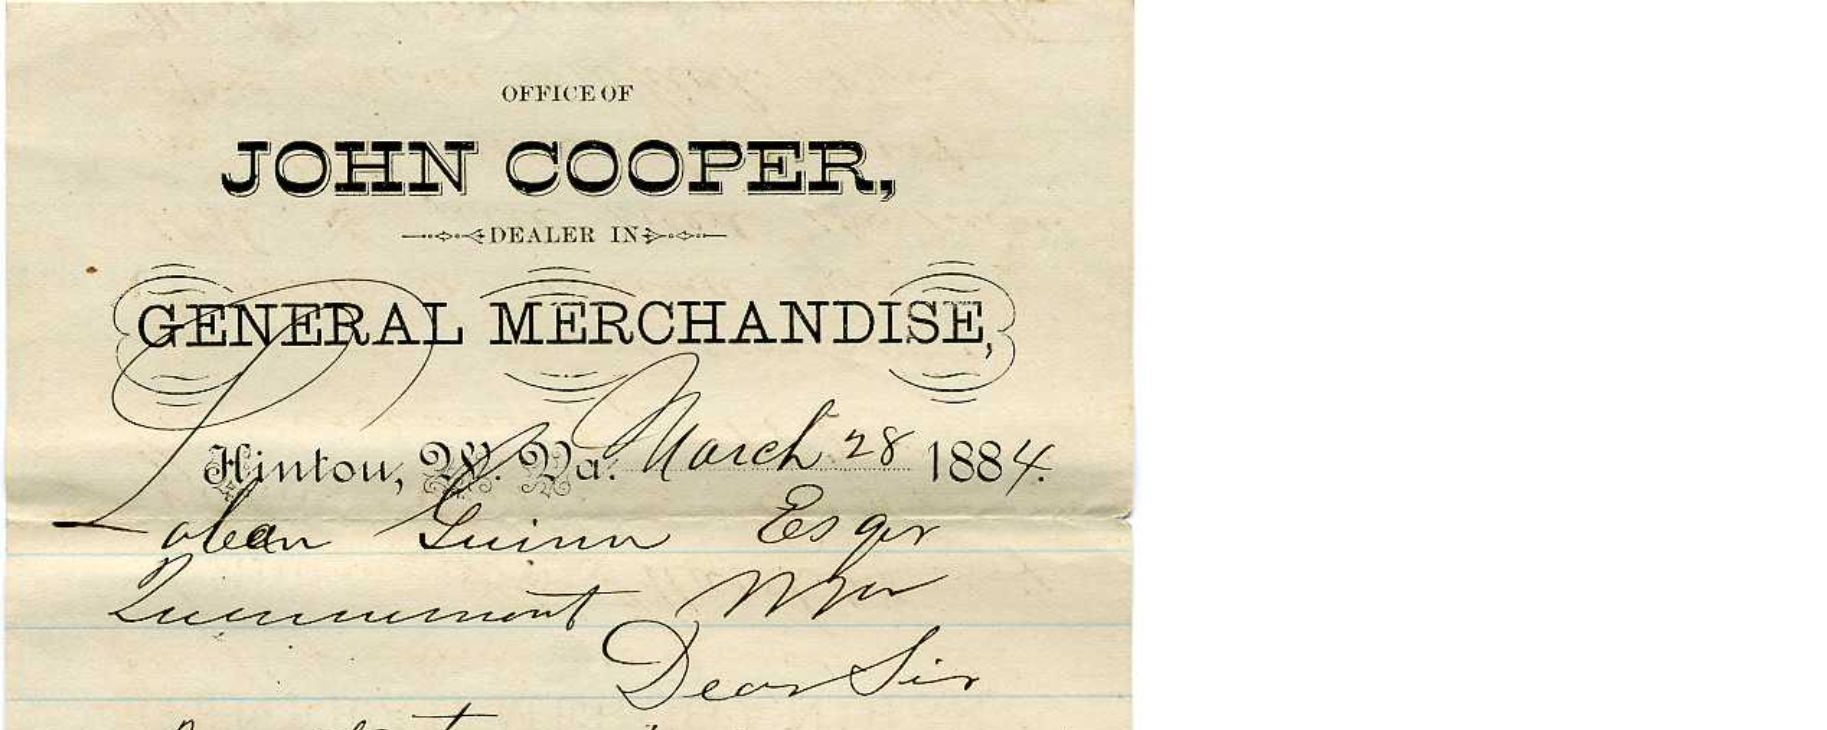 OFFICE OF
JOHN COOPER,
DEALER IN
GENERAL MERCHANDISE,
Hinton, W. Va. March 28 1884.
Loban Guinn Esqr
Quinnimont
Dear Sir